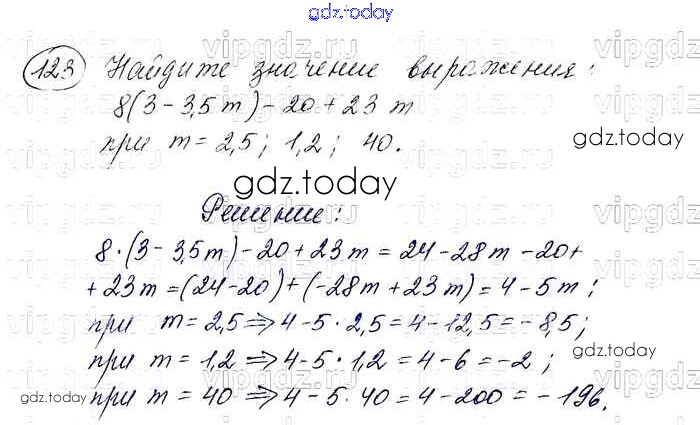 gdz.today
123 Найдите значение выражения:
8(3 – 3,5 m) – 20 + 23 m
при m = 2,5; 1,2; 40.
gdz.today
gdz.today
Решение:
8·(3 – 3,5m) – 20 + 23m = 24 – 28m – 20 +
+ 23m = (24 – 20) + (–28m + 23m) = 4 – 5m;
при m = 2,5 ⇒ 4 – 5 · 2,5 = 4 – 12,5 = – 8,5;
при m = 1,2 ⇒ 4 – 5 · 1,2 = 4 – 6 = – 2;
gdz.today
при m = 40 ⇒ 4 – 5 · 40 = 4 – 200 = – 196.
gdz.today